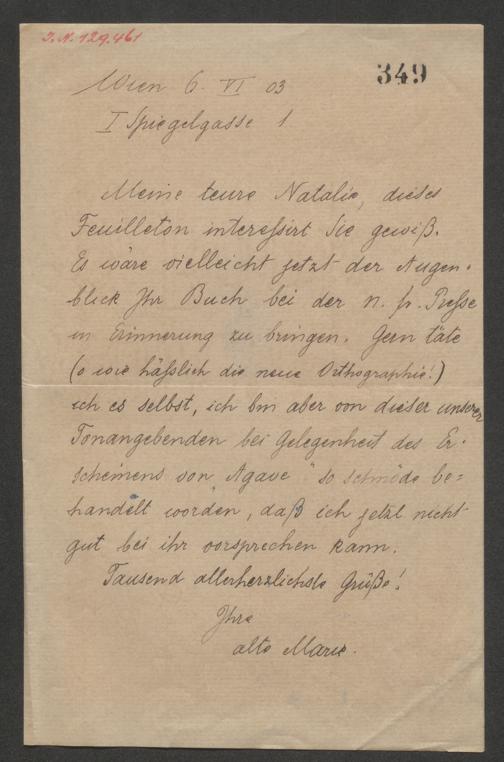 I.N. 129.461
349
Wien 6. VI 03
I Spiegelgasse 1
Meine teure Natalie, dieses
Feuilleton interessirt Sie gewiß.
Es wäre vielleicht jetzt der Augen-
blick Ihr Buch bei der n. fr. Presse
in Erinnerung zu bringen. Gern täte
(o wie hässlich die neue Orthographie!)
ich es selbst, ich bin aber von dieser unserer
Tonangebenden bei Gelegenheit des Er-
scheinens von „Agave" so schnöde be-
handelt worden, daß ich jetzt nicht
gut bei ihr vorsprechen kann.
Tausend allerherzlichste Grüße!
Ihre
alte Marie.